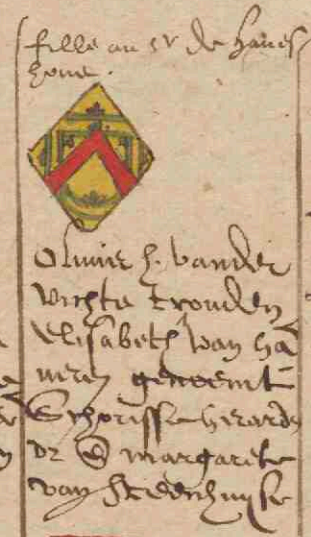 fille au sr de haues
zone.
Oliuir h. vander
vichte trouden
Elisabeth van ha
uerez genoemt
Schorisse herards
dr & margariete
van steenhuyse